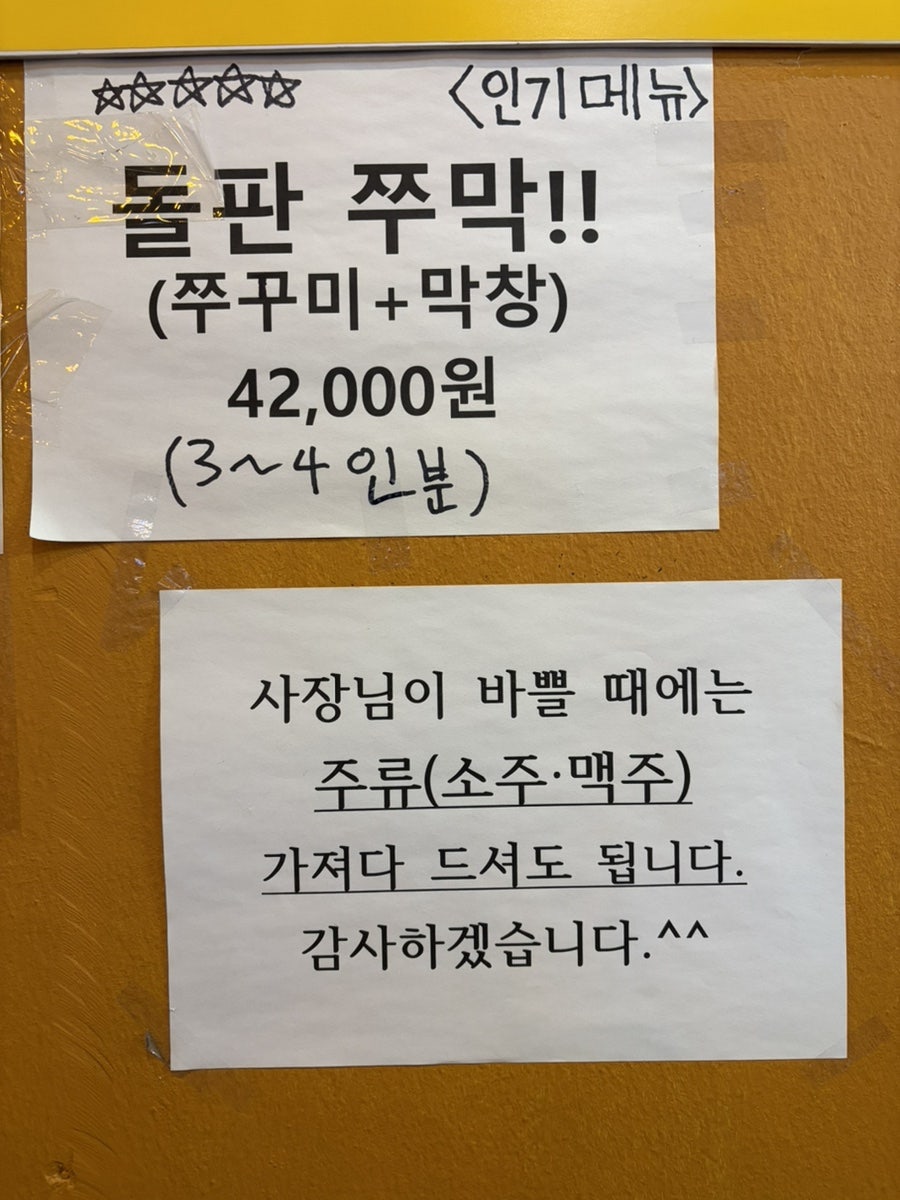 ☆☆☆☆☆ <인기메뉴>
돌판 쭈막!!
(쭈꾸미+막창)
42,000원
(3~4인분)
사장님이 바쁠 때에는
주류(소주·맥주)
가져다 드셔도 됩니다.
감사하겠습니다.^^